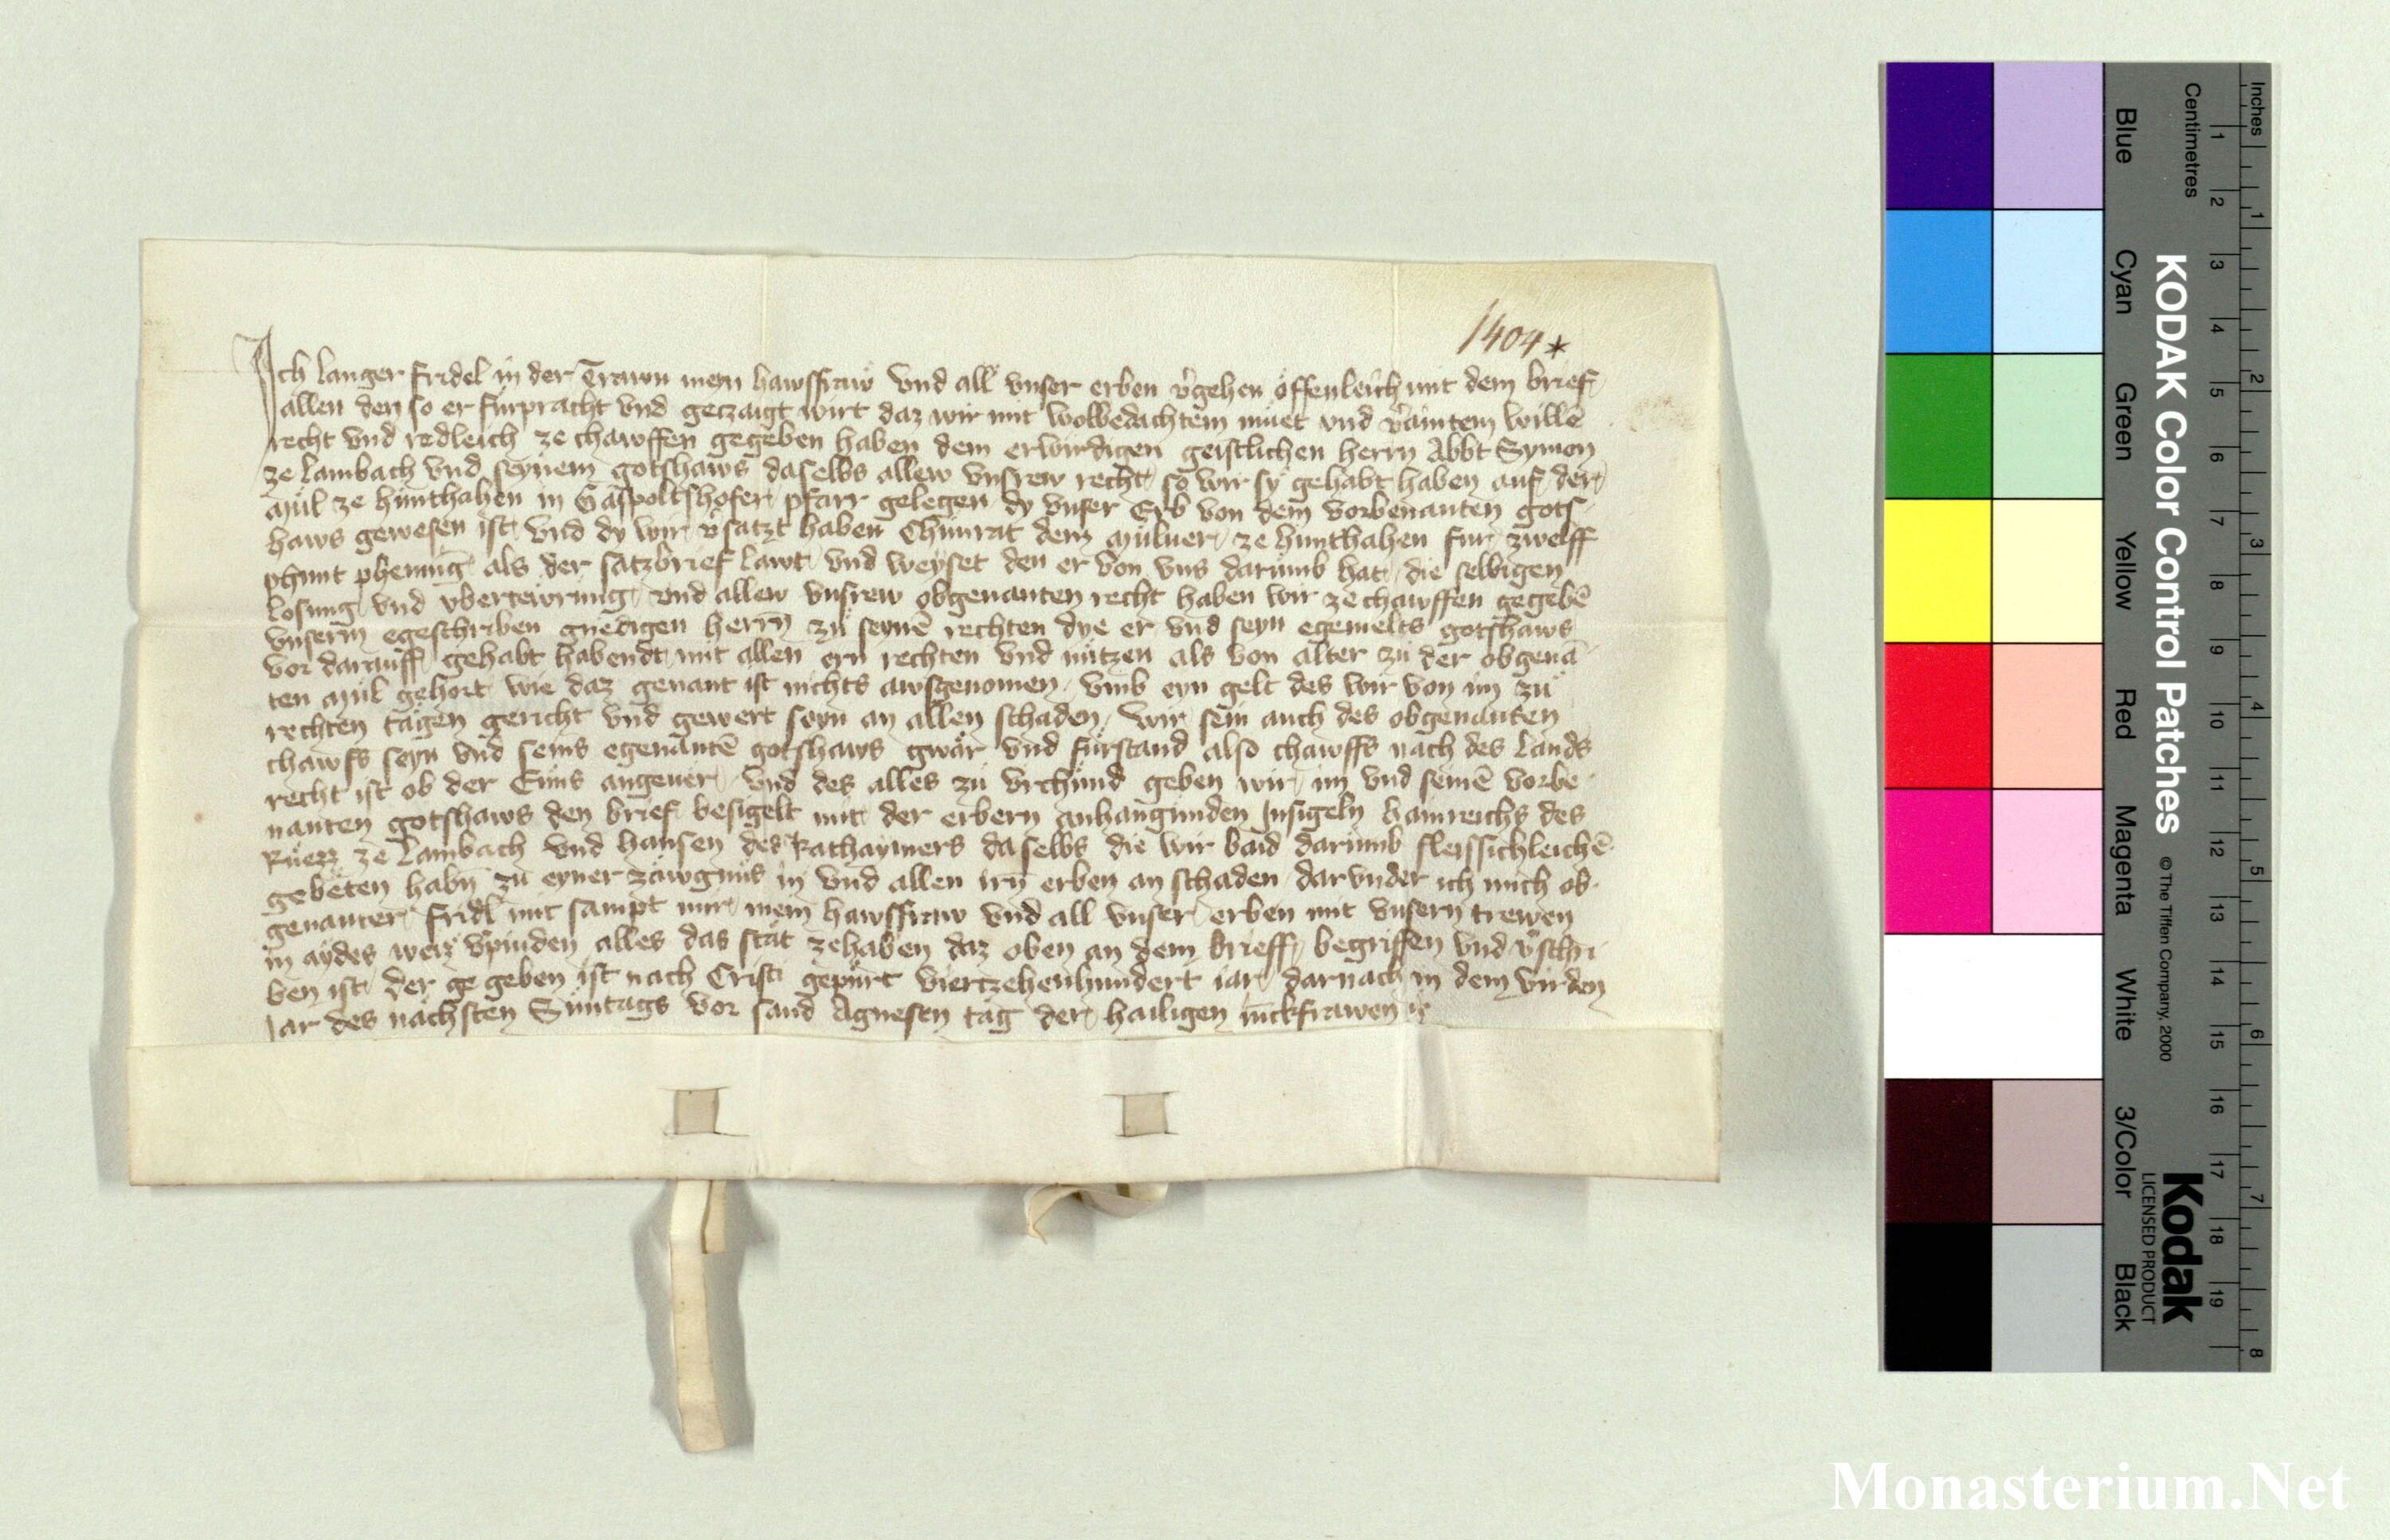 1404*
Ich langer fridel in der Trawn mein hawsfraw vnd all vnser erben v'gehen offenleich mit dem brief
allen den so er furpracht vnd geczaigt wirt daz wir mit wolbedachtem müet vnd v'aintem willē
recht vnd redleich ze chawffen gegeben haben dem erwirdigen geistlichen herrn Abbt Symon
ze lambach vnd seynem gotshaws daselbs allew vnsrew recht so wir sy gehabt haben auf der
Mül ze hünthahen in Gaspoltshofer pfarr gelegen dy vnser Erb von dem vorbenanten gots
haws gewesen ist vnd dy wir v'satzt haben Chünrat dem Mülner ze hünthahen fur zwelff
phunt phenning als der satzbrief lawt vnd weyset den er von vns darumb hat die selbigen
losung vnd vbertewrüng vnd allew vnsrew obgenanten recht haben wir ze chawffen gegebē
vnserm egeschriben gnedigen herrn zu seynē rechten dye er vnd seyn egemelts gotshaws
vor darauff gehabt habendt mit allen ern rechten vnd nützen als von alter zu der obgenā
ten Mül gehort wie daz genant ist nichts awsgenomen vmb eyn gelt des wir von im zu
rechten tägen gericht vnd gewert seyn an allen schaden wir sein auch des obgenanten
chawfs seyn vnd seins egenantē gotshaws gwär vnd fürstand also chawffs nach des lands
recht ist ob der Enns angeuer vnd des alles zu vrchünd geben wir im vnd seinē vorbe
nanten gotshaws den brief besigelt mit der erbern anhangunden Insigeln hainreichs des
ze lambach vnd hansen des Kathaymers daselbs die wir baid darumb fleissichleichē
gebeten habn zu eyner zäwgnüs in vnd allen irn erben an schaden darvnder ich mich ob
genanter fridl mit sampt mir mein hawsfraw vnd all vnser erben mit vnsern trewen
in aydes weiz v'pinden alles das stät zehaben daz oben an dem brieff begriffen vnd v'schri
ben ist der ge geben ist nach Cristi gepürt viertzehenhundert iar darnach in dem virden
Jar des nachsten Suntags vor sand Agnesen tag der hailigen iuckfrawen
Inches
Centimetres
1 2 3 4 5 6 7 8 9 10 11 12 13 14 15 16 17 18 19
1 2 3 4 5 6 7 8
KODAK Color Control Patches
© The Tiffen Company, 2000
Kodak
LICENSED PRODUCT
Blue
Cyan
Green
Yellow
Red
Magenta
White
3/Color
Black
Monasterium.Net